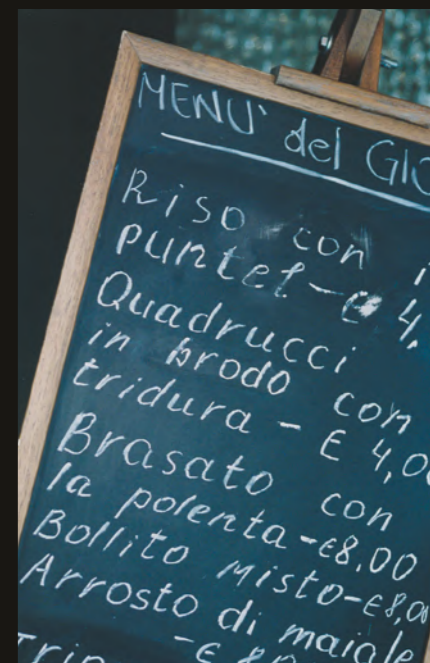 MENU' del GIO
Riso con i
puntel - € 4,
Quadrucci
in brodo con
tridura - € 4,00
Brasato con
la polenta - €8,00
Bollito misto - €8,00
Arrosto di maiale
- € 8,0
Trip